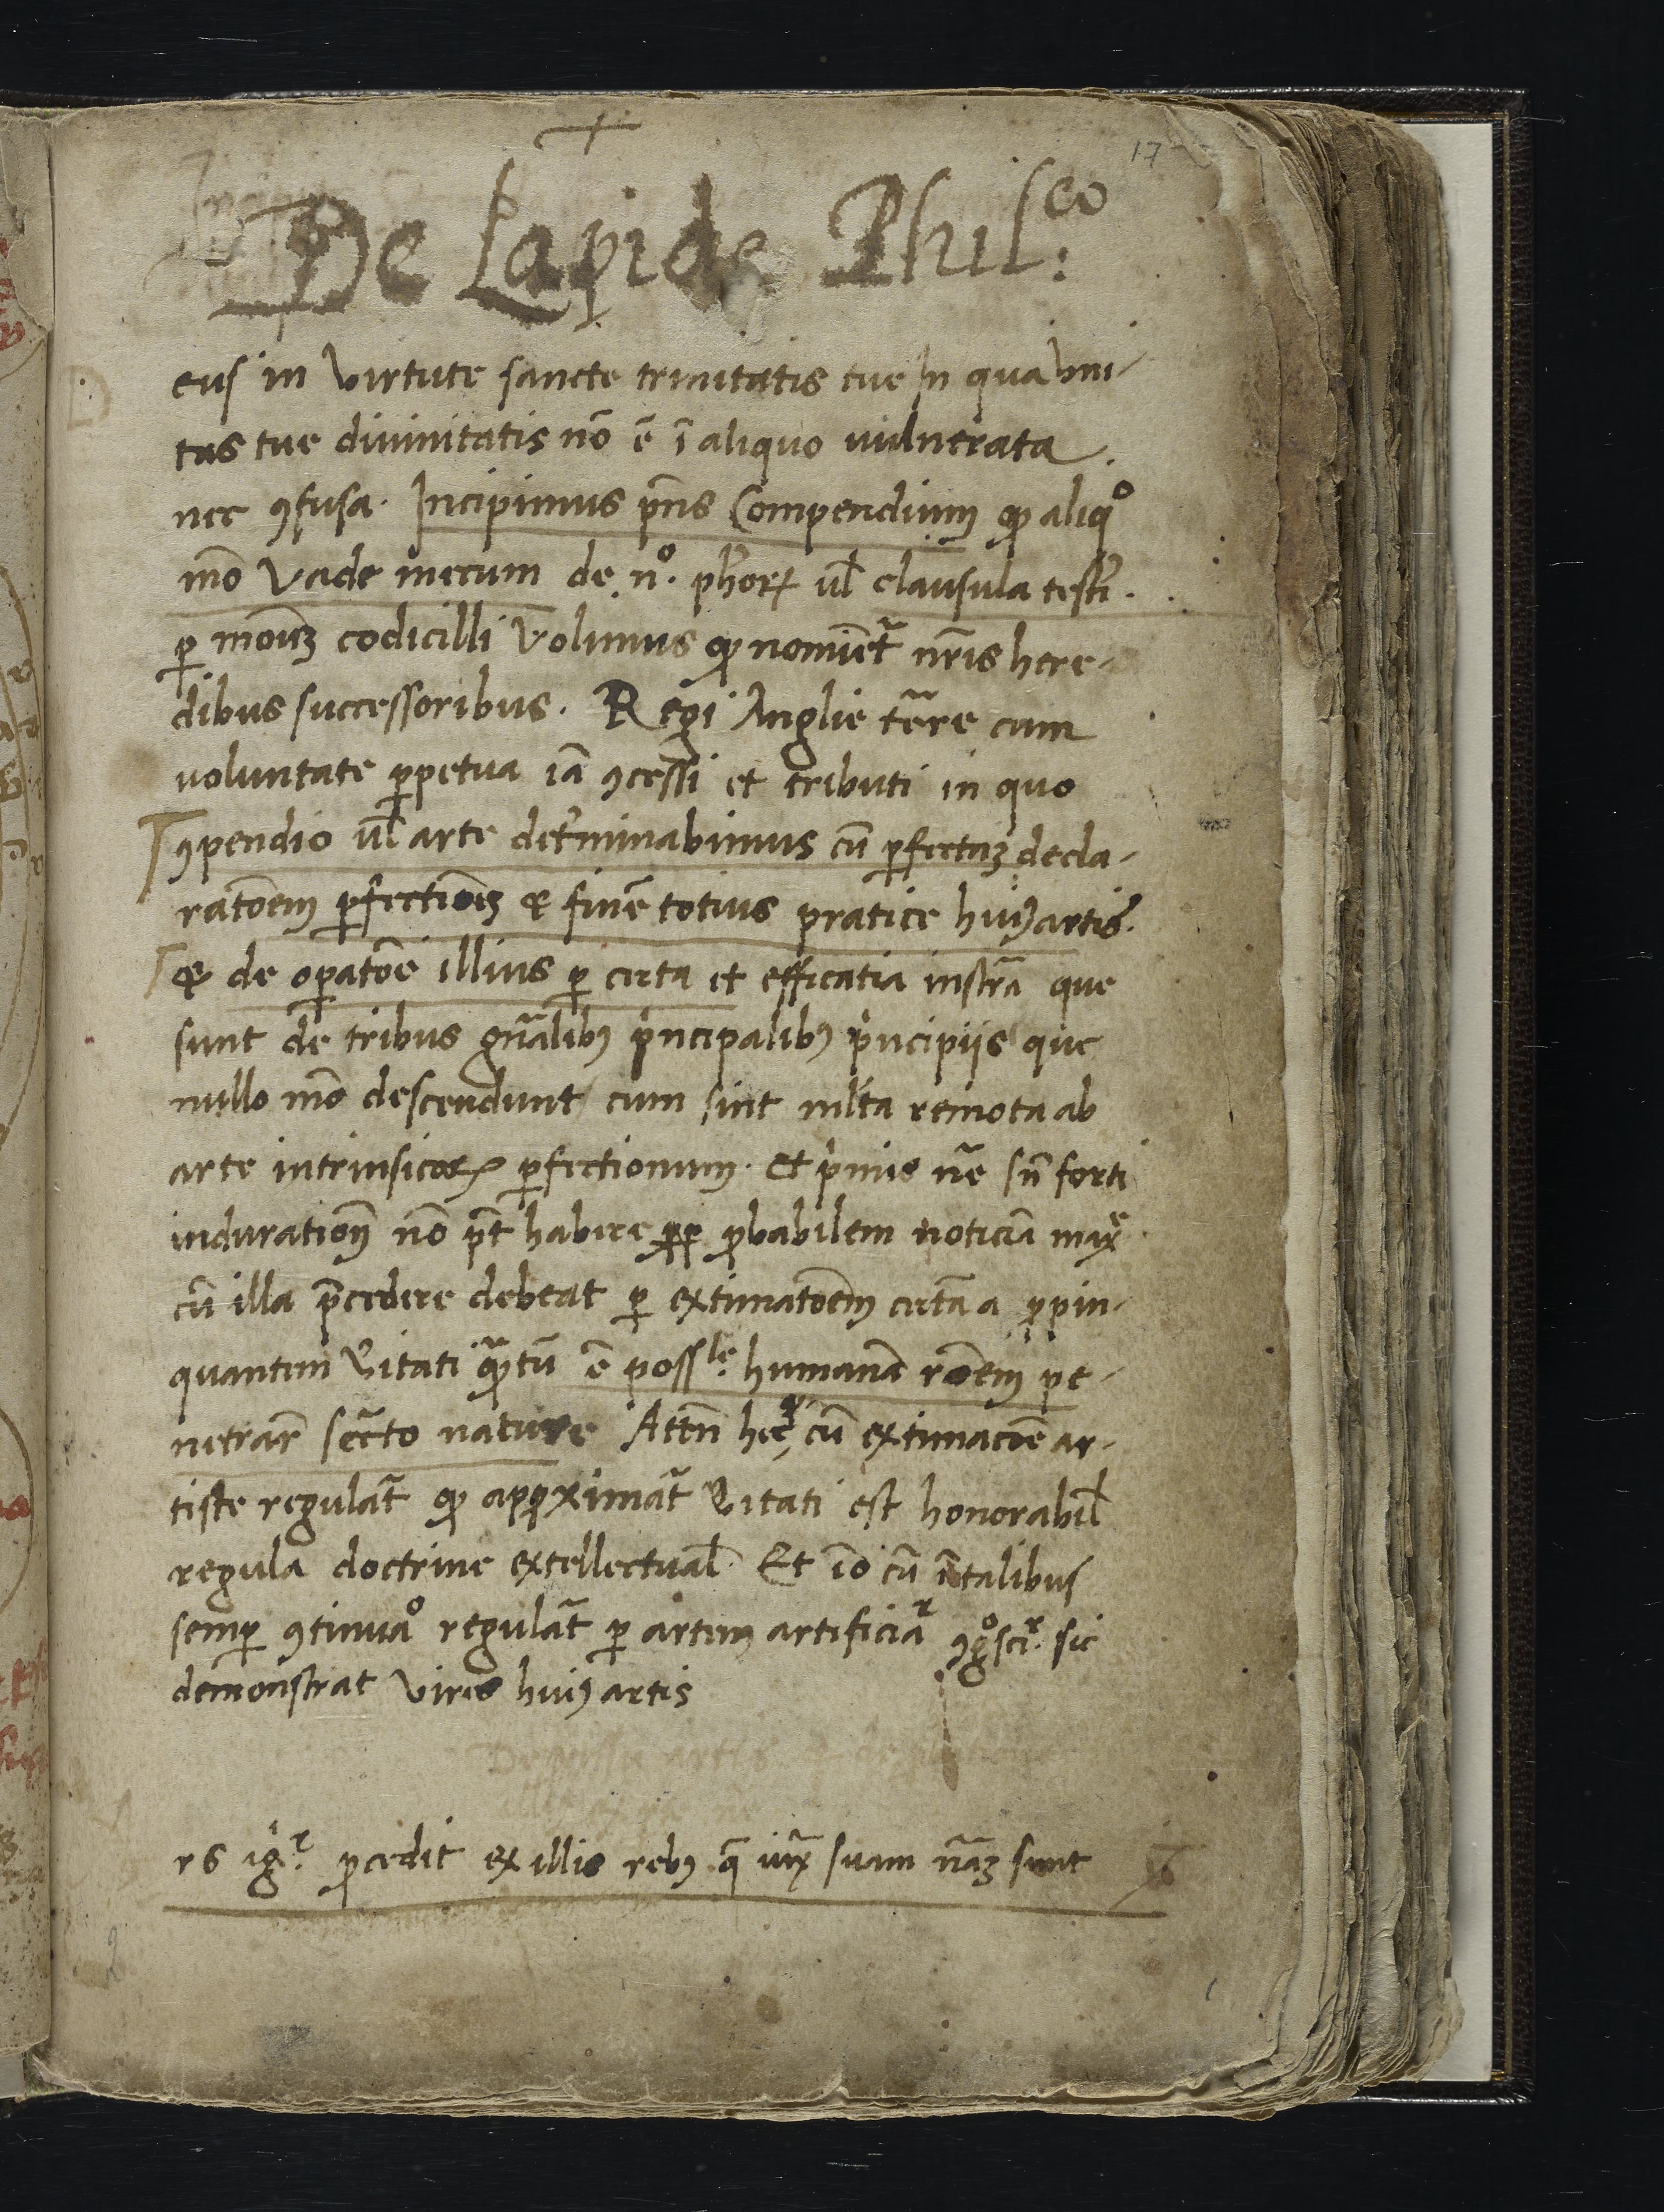 17
De Lapide Phil:co
eus in virtute sancte trinitatis tue In qua uni-
tas tue divinitatis nō ē ī aliquo vulnerata.
nec ꝯfusa. Incipimus p̄ns Compendium qͩ aliqͦ
mō Vade mecum de nͦ. ph̄oꝝ ul̄ clausula test̄i.
ꝑ modū codicilli Volumus qͩ noniēt̄ nr̄is here-
dibus successoribus. Regi Anglie tēre cum
voluntate ꝑpetua iā ꝯcessi et tributi in quo
ꝯpendio ul̄ arte det̄minabimus cū ꝑfectaꝫ decla-
ratōem ꝑfectiōeꝫ & finē totius pratice huiꝰ artis.
& de oꝑatōe illius ꝑ certa et efficatia instr̄a que
sunt de tribus gn̄alibꝰ pͥncipalibꝰ pͥncipiis que
nullo mō descendunt cum sint ml̄ta remota ab
arte intrinsicoꝝ ꝑfectionum. Et pͥmus nē sn̄ forti
induratiōꝫ nō p̄t habere ꝓbabilem noticiā maxͤ
cū illa p̄cedere debeat ꝑ extimatōem certā a ꝓpin-
quantem v̄itati qͣꝫtū ē possle. humanā rōem pe-
netrar̄ sec̄to nature Attn̄ hec cū extimacōe ar-
tiste regulat̄ qͩ apꝓximat̄ v̄itati est honorabil̄
regula doctrine extellectual̄. Et iō cū ī talibus
semꝑ ꝯtinuāͦ regulat̄ ꝑ artem artificiā ꝯgͦscir̄. sic
demonstrat vires huiꝰ artis
rs igͥr. ꝓcedit ex illis rebꝰ q̄ iux̄ suam nāꝫ sunt